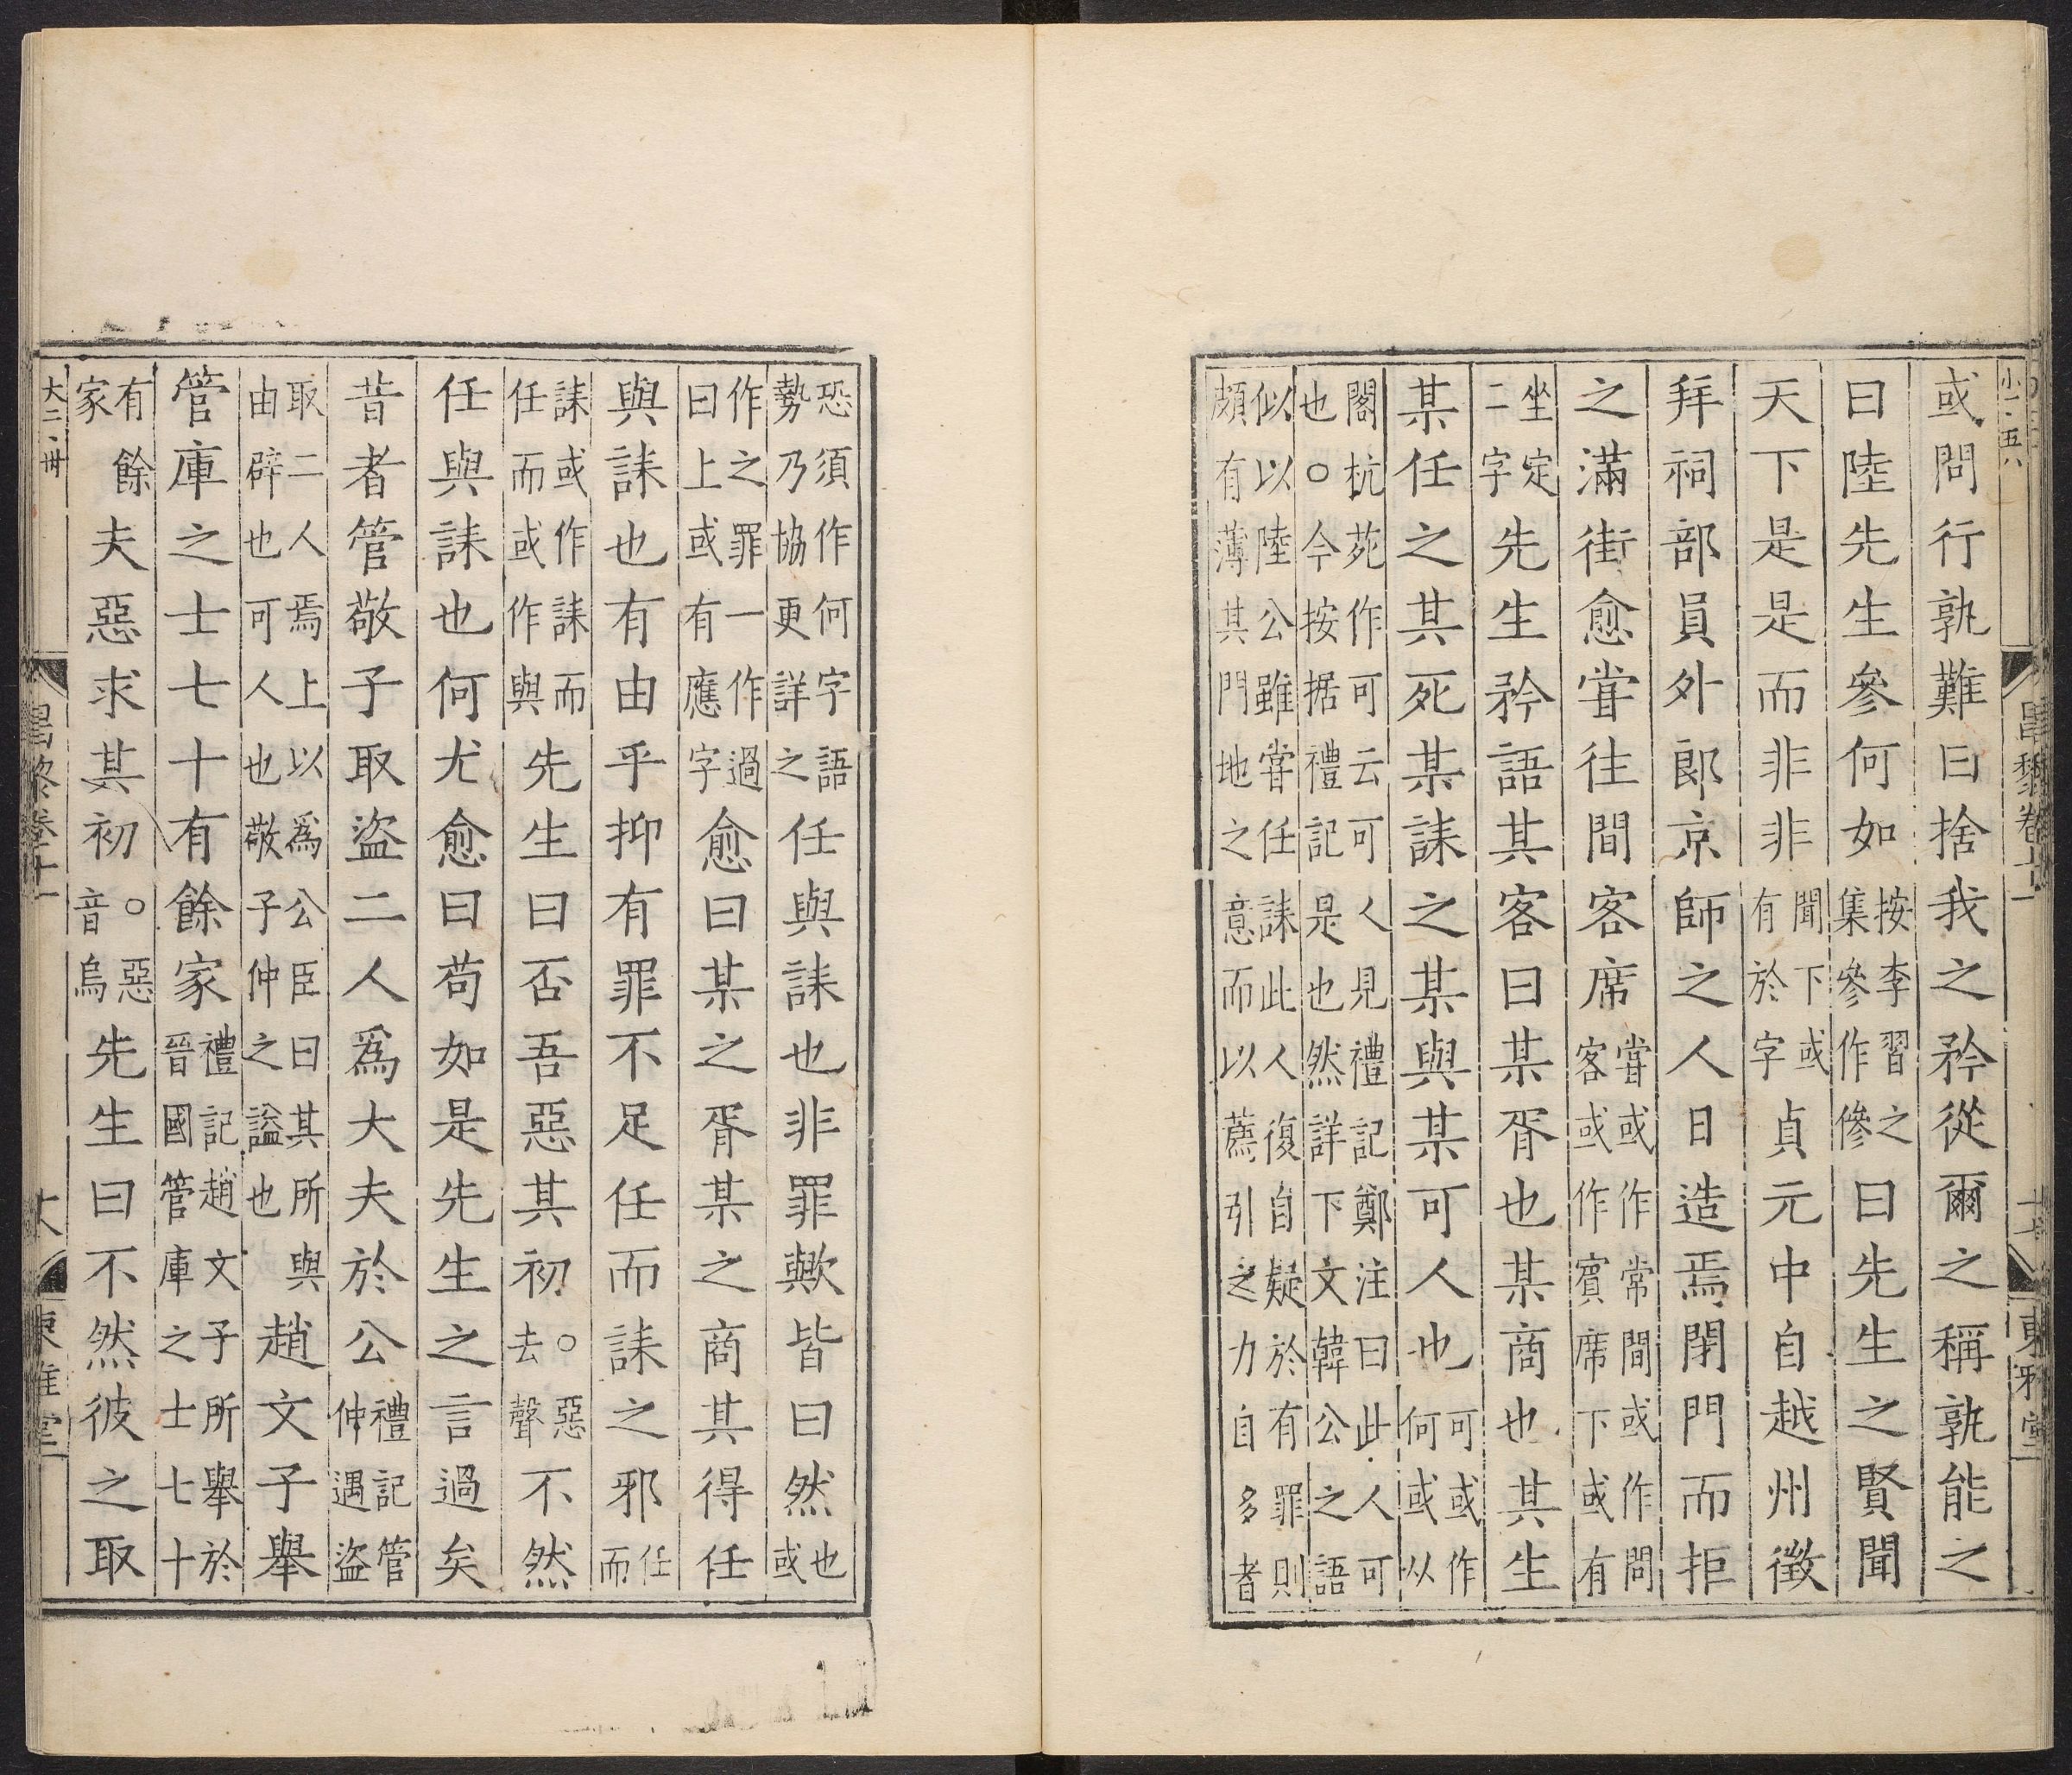 小一·五八
昌黎卷十一
東雅堂
或問行孰難曰捨我之矜從爾之稱孰能之
曰陸先生參何如按李習之集參作傪曰先生之賢聞
天下是是而非非聞下或有於字貞元中自越州徵
拜祠部員外郎京師之人日造焉閉門而拒
之滿街愈嘗往間客席嘗或作常間或作問客或作賓席下或有
坐定二字先生矜語其客曰某胥也某商也其生
某任之其死某誄之某與某可人也可或作何或以
閣杭苑作可云可人見禮記鄭注曰此人可也○今按据禮記是也然詳下文韓公之語
似以陸公雖嘗任誄此人復自疑於有罪則頗有薄其門地之意而以薦引之力自多者
恐須作何字語勢乃協更詳之任與誄也非罪歟皆曰然也或
作之罪一作過曰上或有應字愈曰某之胥某之商其得任
與誄也有由乎抑有罪不足任而誄之邪任而
誄或作誄而任而或作與先生曰否吾惡其初○惡去聲不然
任與誄也何尤愈曰苟如是先生之言過矣
昔者管敬子取盜二人爲大夫於公禮記管仲遇盜
取二人焉上以爲公臣曰其所與由辟也可人也敬子仲之謚也趙文子舉
管庫之士七十有餘家禮記趙文子所舉於晉國管庫之士七十
有餘家夫惡求其初○惡音烏先生曰不然彼之取
大二·卅
昌黎卷十一
東雅堂